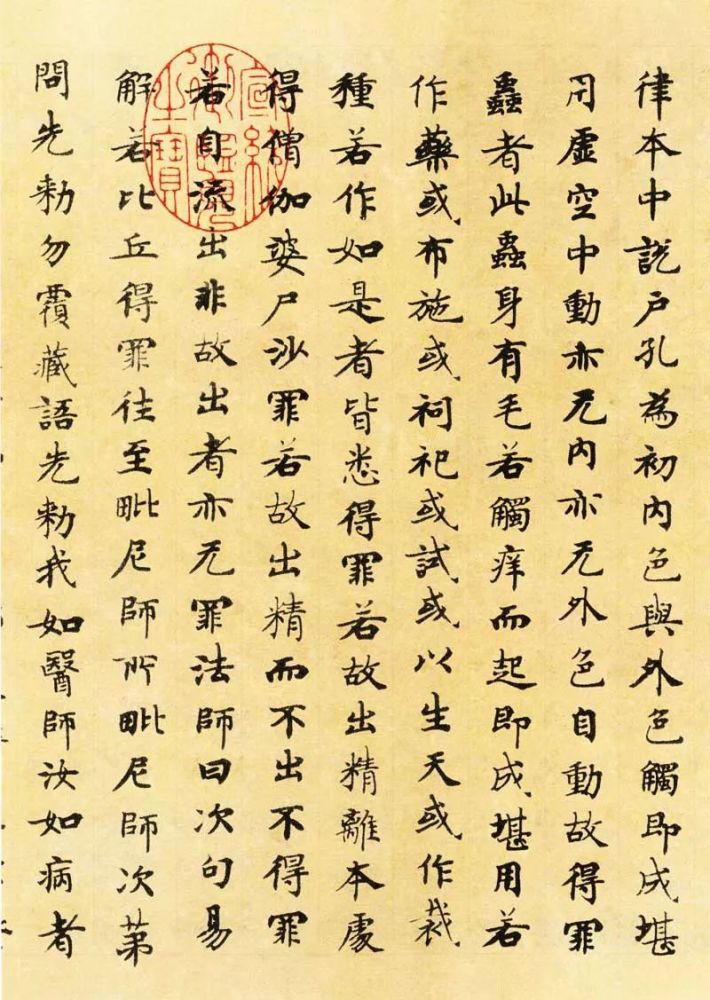 律本中說戶孔為初內色與外色觸即成堪
用虛空中動亦无內亦无外色自動故得罪
蟲者此蟲身有毛若觸痒而起即成堪用若
作藥或布施或祠祀或試或以生天或作裁
種若作如是者皆悉得罪若故出精離本處
得僧伽婆尸沙罪若故出精而不出不得罪
若自流出非故出者亦无罪法師曰次句易
解若比丘得罪往至毗尼師所毗尼師次苐
問先勑勿覆藏語先勑我如醫師汝如病者
宣統
御覽
之寶